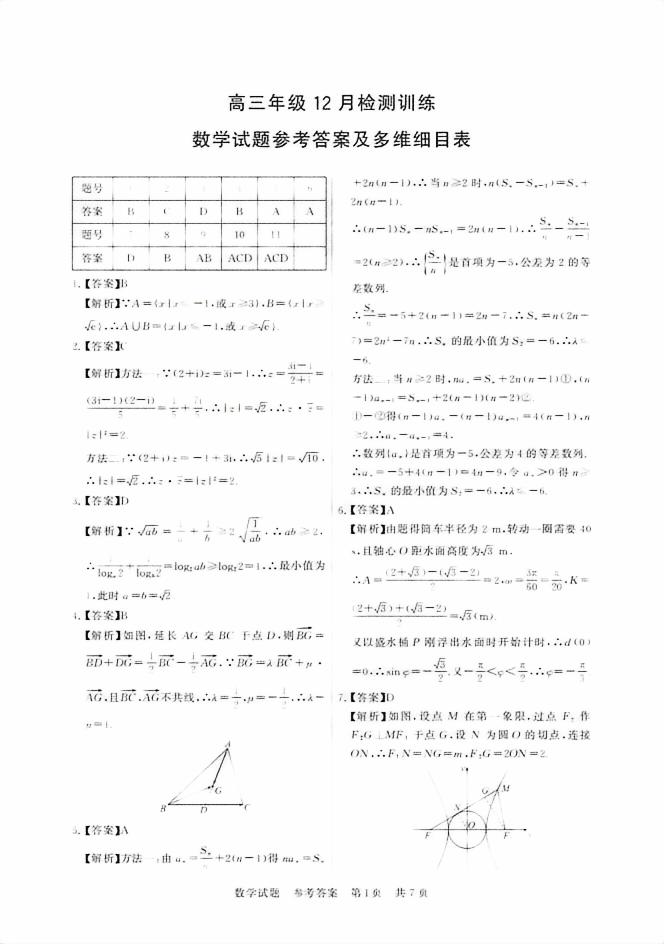 高三年级 12 月检测训练
数学试题参考答案及多维细目表
题号 6
答案 B C D B A A
题号 8 9 10 11
答案 D B AB ACD ACD
1.【答案】B
【解析】∵A={x|x≤-1,或x≥3},B={x|x≥
√e},∴A∪B={x|x≤-1,或x≥√e}.
2.【答案】C
【解析】方法 ∵(2+i)z=3i-1,∴z=(3i-1)/(2+i)=
(3i-1)(2-i)/5=1/5+7i/5,∴|z|=√2,∴z·z̄=
|z|²=2.
方法二:∵(2+i)z=-1+3i,∴√5|z|=√10,
∴|z|=√2,∴z·z̄=|z|²=2.
3.【答案】D
【解析】∵√ab= + ≥2 ,∴ab≥2,
∴1/logₐ2+1/log_b2=log₂ab≥log₂2=1,∴最小值为
1,此时a=b=√2
4.【答案】B
【解析】如图,延长 AG 交 BC 于点 D,则BG=
BD+DG=1/2BC-1/2AG,∵BG=λBC+μ·
AG,且BC,AG不共线,∴λ=1/2,μ=-1/2,∴λ-
μ=1.
A
G
B D C
5.【答案】A
【解析】方法一:由 aₙ=Sₙ/n+2(n-1)得 naₙ=Sₙ
+2n(n-1),∴当 n≥2 时,n(Sₙ-Sₙ₋₁)=Sₙ+
2n(n-1).
∴(n-1)Sₙ-nSₙ₋₁=2n(n-1),∴Sₙ/n-Sₙ₋₁/(n-1)
=2(n≥2),∴{Sₙ/n}是首项为-5,公差为 2 的等
差数列.
∴Sₙ/n=-5+2(n-1)=2n-7,∴Sₙ=n(2n-
7)=2n²-7n,∴Sₙ 的最小值为 S₂=-6,∴λ≤
-6.
方法二:当 n≥2 时,naₙ=Sₙ+2n(n-1)①,(n
-1)aₙ₋₁=Sₙ₋₁+2(n-1)(n-2)②,
①-②得(n-1)aₙ-(n-1)aₙ₋₁=4(n-1),n
≥2,∴aₙ-aₙ₋₁=4,
∴数列{aₙ}是首项为-5,公差为 4 的等差数列,
∴aₙ=-5+4(n-1)=4n-9,令 aₙ>0 得 n≥
3,∴Sₙ 的最小值为 S₂=-6,∴λ≤-6.
6.【答案】A
【解析】由题得筒车半径为 2 m,转动一圈需要 40
s,且轴心 O 距水面高度为√3 m.
∴A=((2+√3)-(√3-2))/2=2,ω=3π/60=π/20,K=
((2+√3)+(√3-2))/2=√3(m).
又以盛水桶 P 刚浮出水面时开始计时,∴d(0)
=0,∴sin φ=-√3/2,又-π/2<φ<π/2,∴φ=-π/3
7.【答案】D
【解析】如图,设点 M 在第一象限,过点 F₂ 作
F₂G⊥MF₁ 于点 G,设 N 为圆 O 的切点,连接
ON,∴F₁N=NG=m,F₂G=2ON=2
G M
N
F O F
数学试题 参考答案 第 1 页 共 7 页